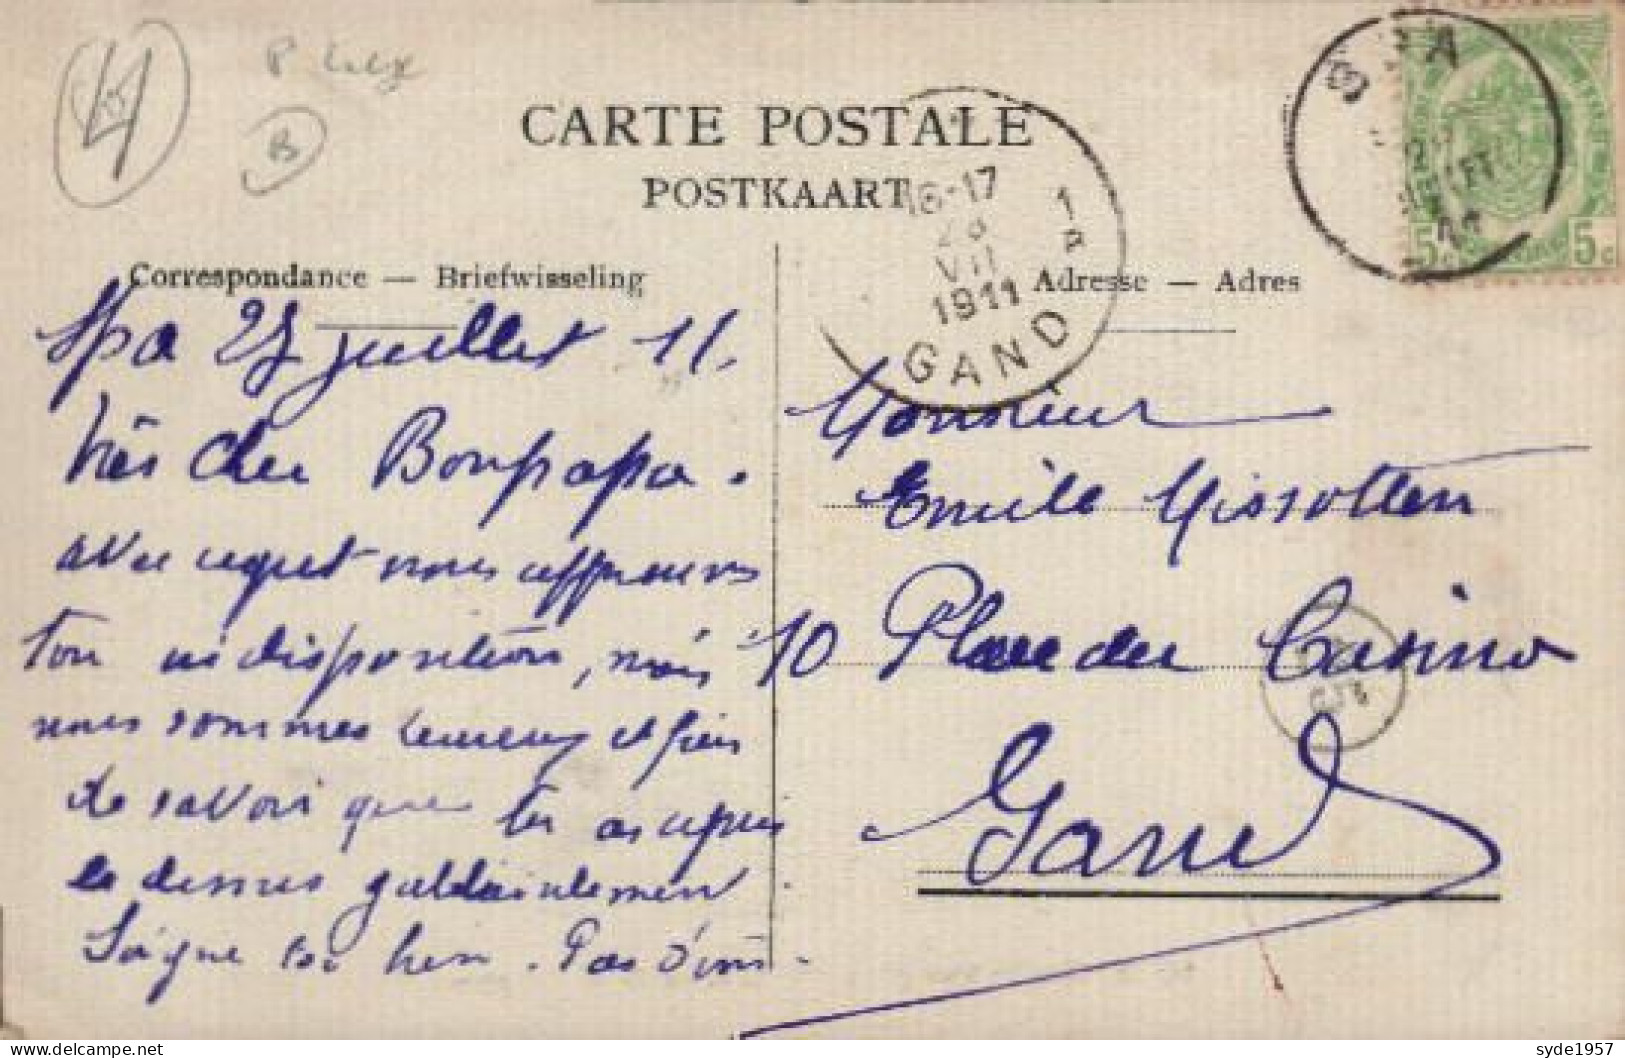 4
B
CARTE POSTALE
POSTKAART
SPA
5c 5c
16-17
28
VII
1911
GAND
Correspondance — Briefwisseling
Adresse — Adres
Spa 25 juillet 11.
très cher Bonpapa.
avec regret nous apprenons
ton indisposition, mais
nous sommes heureux et fiers
de savoir que tu as repris
le dessus gaillardement.
Soigne toi bien. Pas d'im-
Monsieur
Emile Missotten
10 Place du Casino
Gand
delcampe.net
syde1957